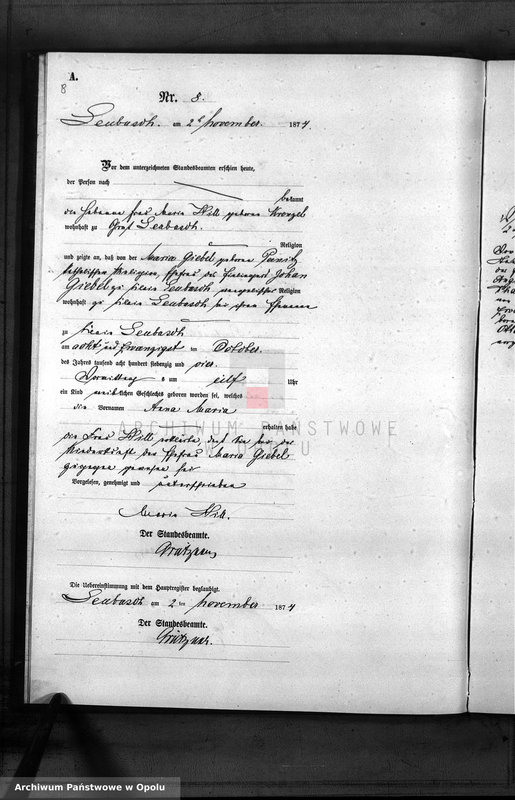 A.
8
Nr. 8.
Leubusch. am 2t November. 1874.
Vor dem unterzeichneten Standesbeamten erschien heute,
der Person nach
bekannt
die Hebamme Frau Maria Will geborne
wohnhaft zu Groß Leubusch.
Religion
und zeigte an, daß von der Maria Giebel geborne
katholischer Religion, Ehefrau des Johan
Giebel zu Klein Leubusch evangelischer Religion
wohnhaft zu Klein Leubusch bei ihrem Ehemann
zu Klein Leubusch
am acht und zwanzigst en October.
des Jahres tausend acht hundert siebenzig und vier
Vormittag s um eilf Uhr
ein Kind weiblichen Geschlechts geboren worden sei, welches
die Vornamen Anna Maria
erhalten habe
die Frau Will erklärte, daß sie bei der
Niederkunft der Ehefrau Maria Giebel
zugegen gewesen sei
Vorgelesen, genehmigt und unterschrieben
Maria Will.
Der Standesbeamte.
Die Uebereinstimmung mit dem Hauptregister beglaubigt.
Leubusch am 2 ten November 1874
Der Standesbeamte.
ARCHIWUM PAŃSTWOWE
W OPOLU
Archiwum Państwowe w Opolu